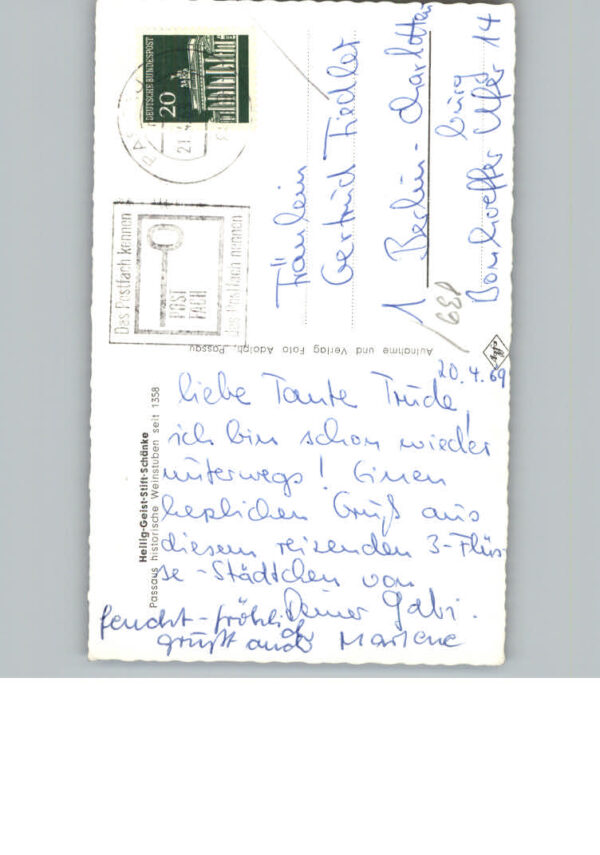 Heilig-Geist-Stift-Schänke
Passaus historische Weinstuben seit 1358
20.4.69
liebe Tante Trude,
ich bin schon wieder
unterwegs! Einen
herzlichen Gruß aus
diesem reizenden 3-Flüs-
se-Städtchen von
Deiner Gabi.
feucht-fröhlich
grüßt auch Marlene
Aufnahme und Verlag Foto Adolph, Passau
Das Postfach kennen
POST
FACH
das Postfach nennen
DEUTSCHE BUNDESPOST
20
Fräulein
Gertrud Fiedler
1 Berlin-Charlotten
burg
Bonhoeffer Ufer 14